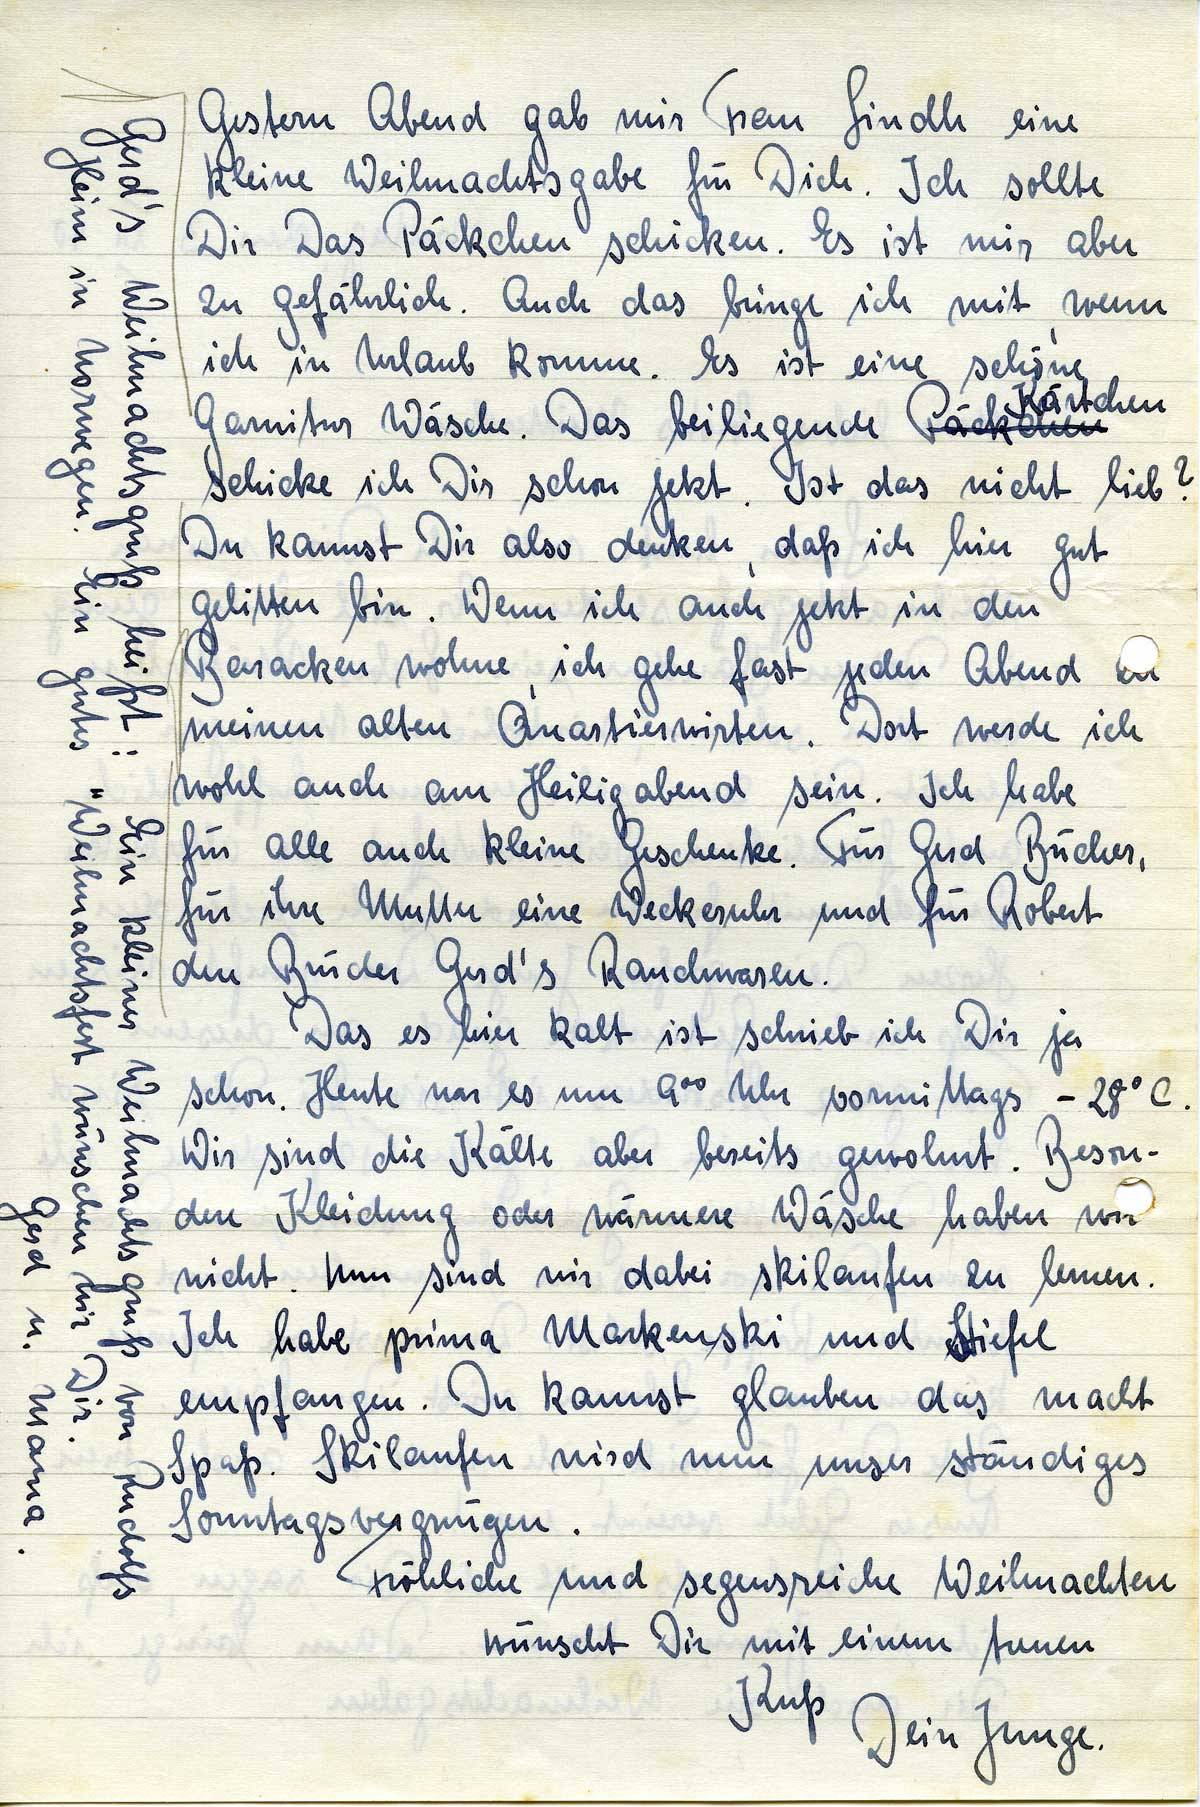 Gestern Abend gab mir Frau Lindh eine
kleine Weihnachtsgabe für Dich. Ich sollte
Dir Das Päckchen schicken. Es ist mir aber
zu gefährlich. Auch das bringe ich mit, wenn
ich in Urlaub komme. Es ist eine schöne
Garnitur Wäsche. Das beiliegende Päckchen Kärtchen
schicke ich Dir schon jetzt. Ist das nicht lieb?
Du kannst Dir also denken, daß ich hier gut
gelitten bin. Wenn ich auch jetzt in den
Baracken wohne, ich gehe fast jeden Abend zu
meinen alten Quartierwirten. Dort werde ich
wohl auch am Heiligabend sein. Ich habe
für alle auch kleine Geschenke. Für Gerd Bücher,
für ihre Mutter eine Weckeruhr und für Robert
den Bruder Gerd's Rauchwaren.
Das es hier kalt ist schrieb ich Dir ja
schon. Heute war es um 9⁰⁰ Uhr vormittags – 28° C.
Wir sind die Kälte aber bereits gewohnt. Beson-
dere Kleidung oder wärmere Wäsche haben wir
nicht. Nun sind wir dabei skilaufen zu lernen.
Ich habe prima Markenski und Stiefel
empfangen. Du kannst glauben das macht
Spaß. Skilaufen wird nun unser ständiges
Sonntagsvergnügen.
Fröhliche und segensreiche Weihnachten
wünscht Dir mit einem treuen
Kuß
Dein Junge.
Gerd's Weihnachtsgruß heißt: Ein kleiner Weihnachtsgruß von Rudolfs
Heim in Norwegen. Ein gutes "Weihnachtsfest wünschen wir Dir.
Gerd u. Mama.